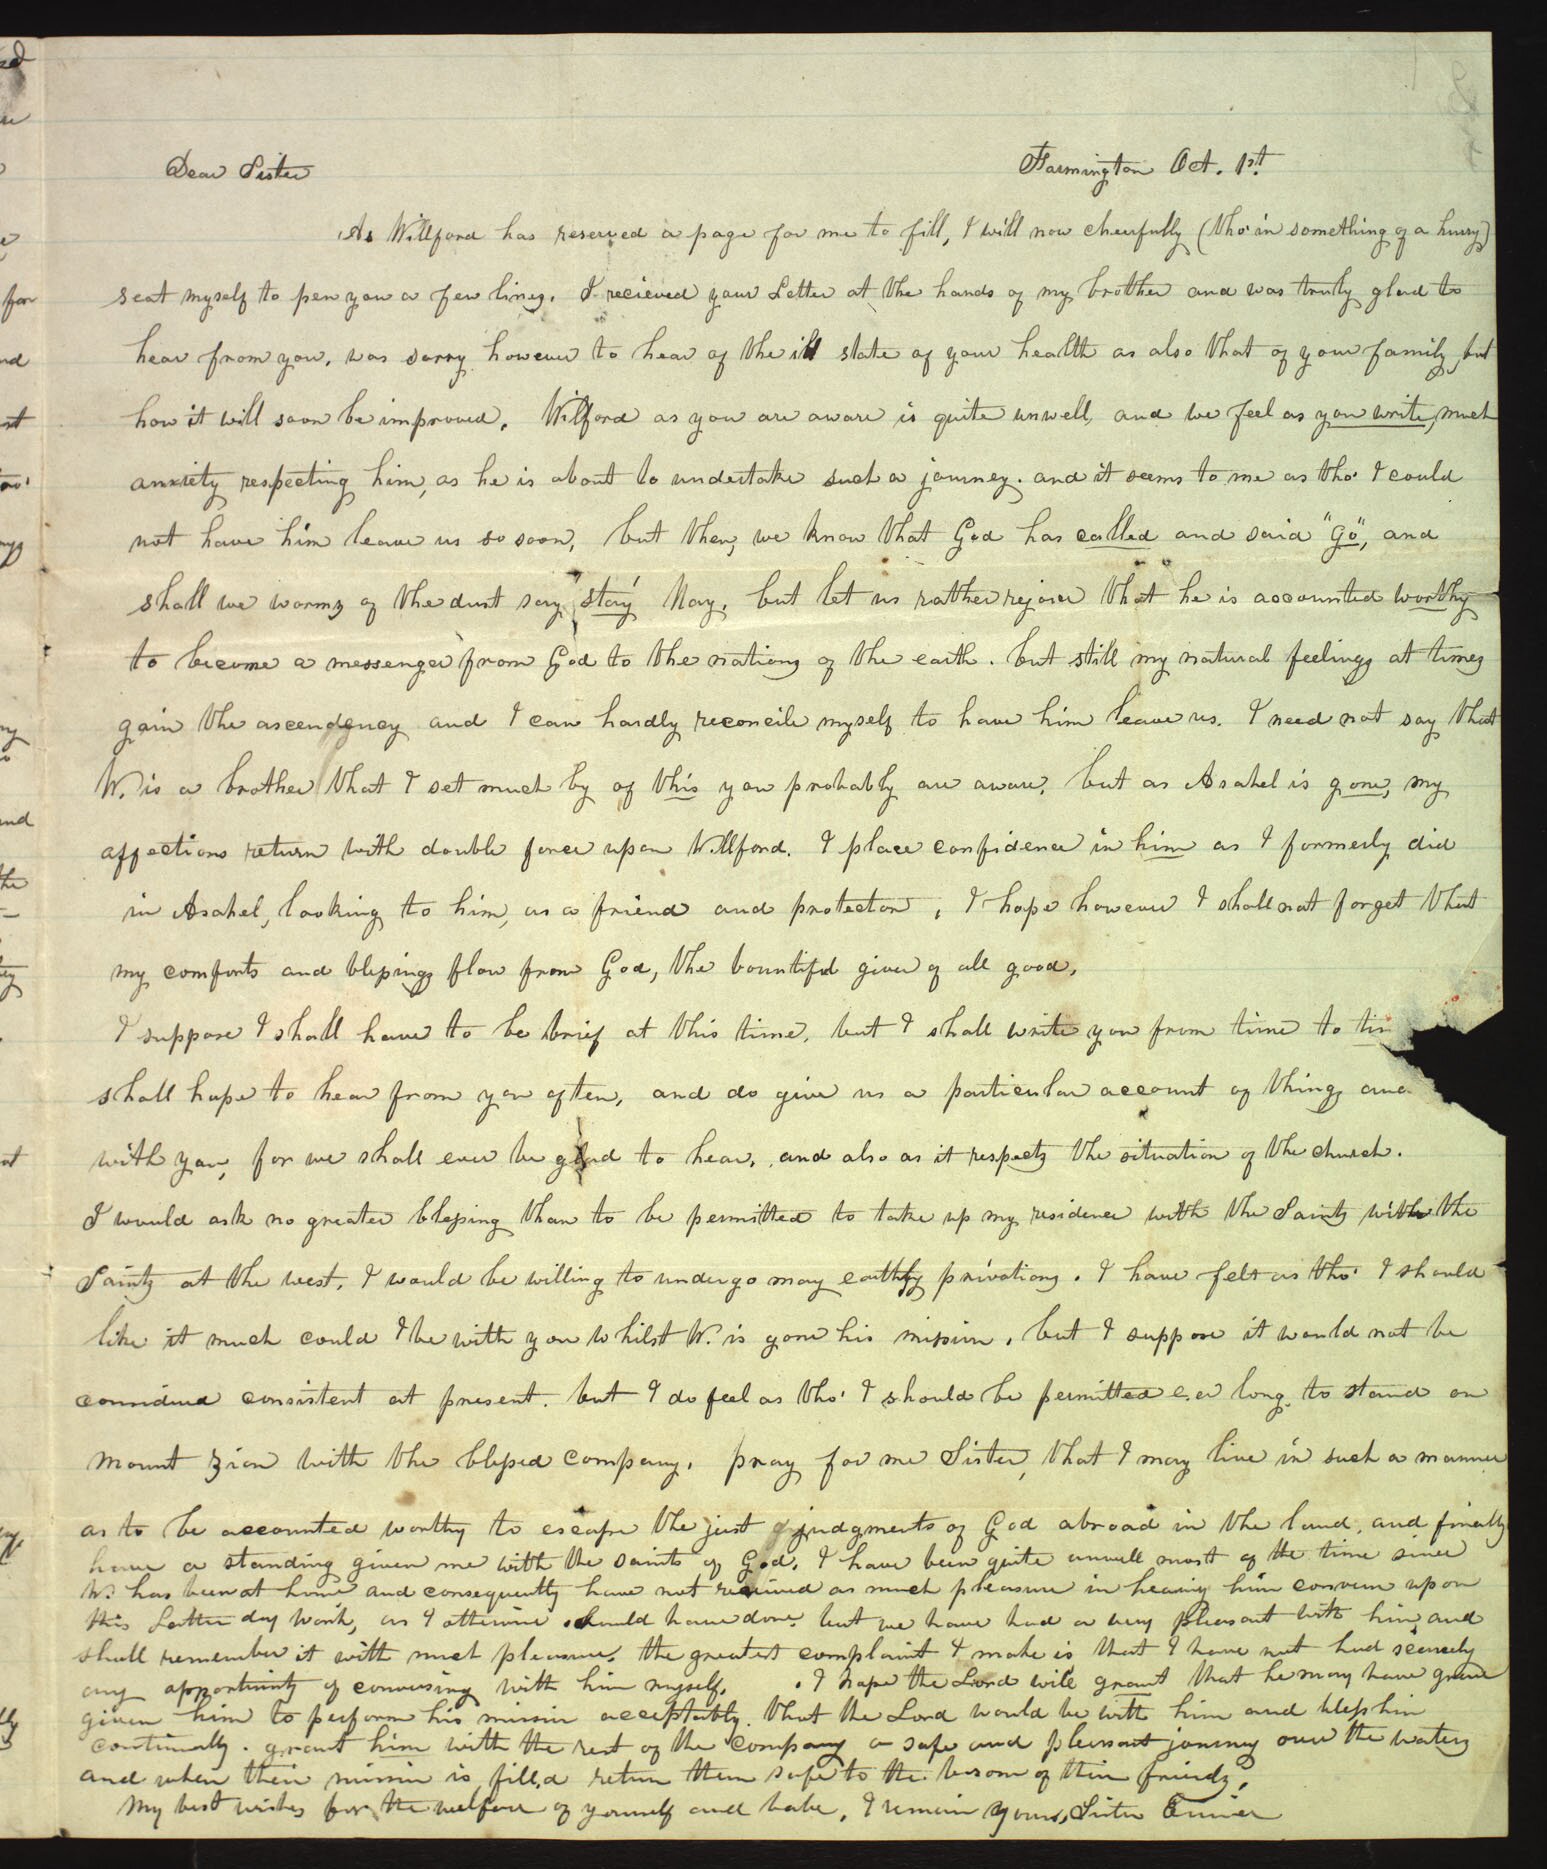 Dear Sister Farmington Oct. 1st
As Willford has reserved a page for me to fill, I will now cheerfully (tho' in something of a hurry)
seat myself to pen you a few lines. I recieved your Letter at the hands of my brother and was truly glad to
hear from you, was sorry however to hear of the ill state of your health as also that of your family, but
how it will soon be improved. Wilford as you are aware is quite unwell, and we feel as you write, much
anxiety respecting him, as he is about to undertake such a journey. and it seems to me as tho' I could
not have him leave us so soon, but then, we know that God has called and said "Go", and
shall we worms of the dust say "stay" Nay, but let us rather rejoice that he is accounted worthy
to become a messenger from God to the nations of the earth. but still my natural feelings at times
gain the ascendency and I can hardly reconcile myself to have him leave us. I need not say that
W. is a brother that I set much by of this you probably are aware, but as Asahel is gone, my
affections return with double force upon Willford. I place confidence in him as I formerly did
in Asahel, looking to him, as a friend and protector, I hope however I shall not forget that
my comforts and blessings flow from God, the bountiful giver of all good,
I suppose I shall have to be brief at this time, but I shall write you from time to tim
shall hope to hear from you often, and do give us a particular account of things
with you, for we shall ever be glad to hear, and also as it respects the situation of the church.
I would ask no greater blessing than to be permitted to take up my residence with the Saints with the
Saints at the west, I would be willing to undergo many earthly privations. I have felt as tho' I should
like it much could I be with you whilst W. is gone his mission, but I suppose it would not be
considered consistent at present. but I do feel as tho' I should be permitted e,er long, to stand on
mount zion with the blessed company, pray for me Sister, that I may live in such a manner
as to be accounted worthy to escape the just judgments of God abroad in the land, and finally
have a standing given me with the saints of God. I have been quite unwell most of the time since
W. has been at home and consequently have not received as much pleasure in hearing him converse upon
this Latter day Work, as I otherwise should have done. but we have had a very pleasant with him, and
shall remember it with much pleasure. the greatest complaint I make is that I have not had scarcely
any opportunity of conversing with him myself. I hope the Lord will grant that he may have grace
given him to perform his mission acceptably. that the Lord would be with him and bless him
continually. grant him with the rest of the company a safe and pleasant journey over the waters
and when their mission is filled return them safe to the bosom of their friends.
My best wishes for the welfare of yourself and babe, I remain yours, Sister Eunice